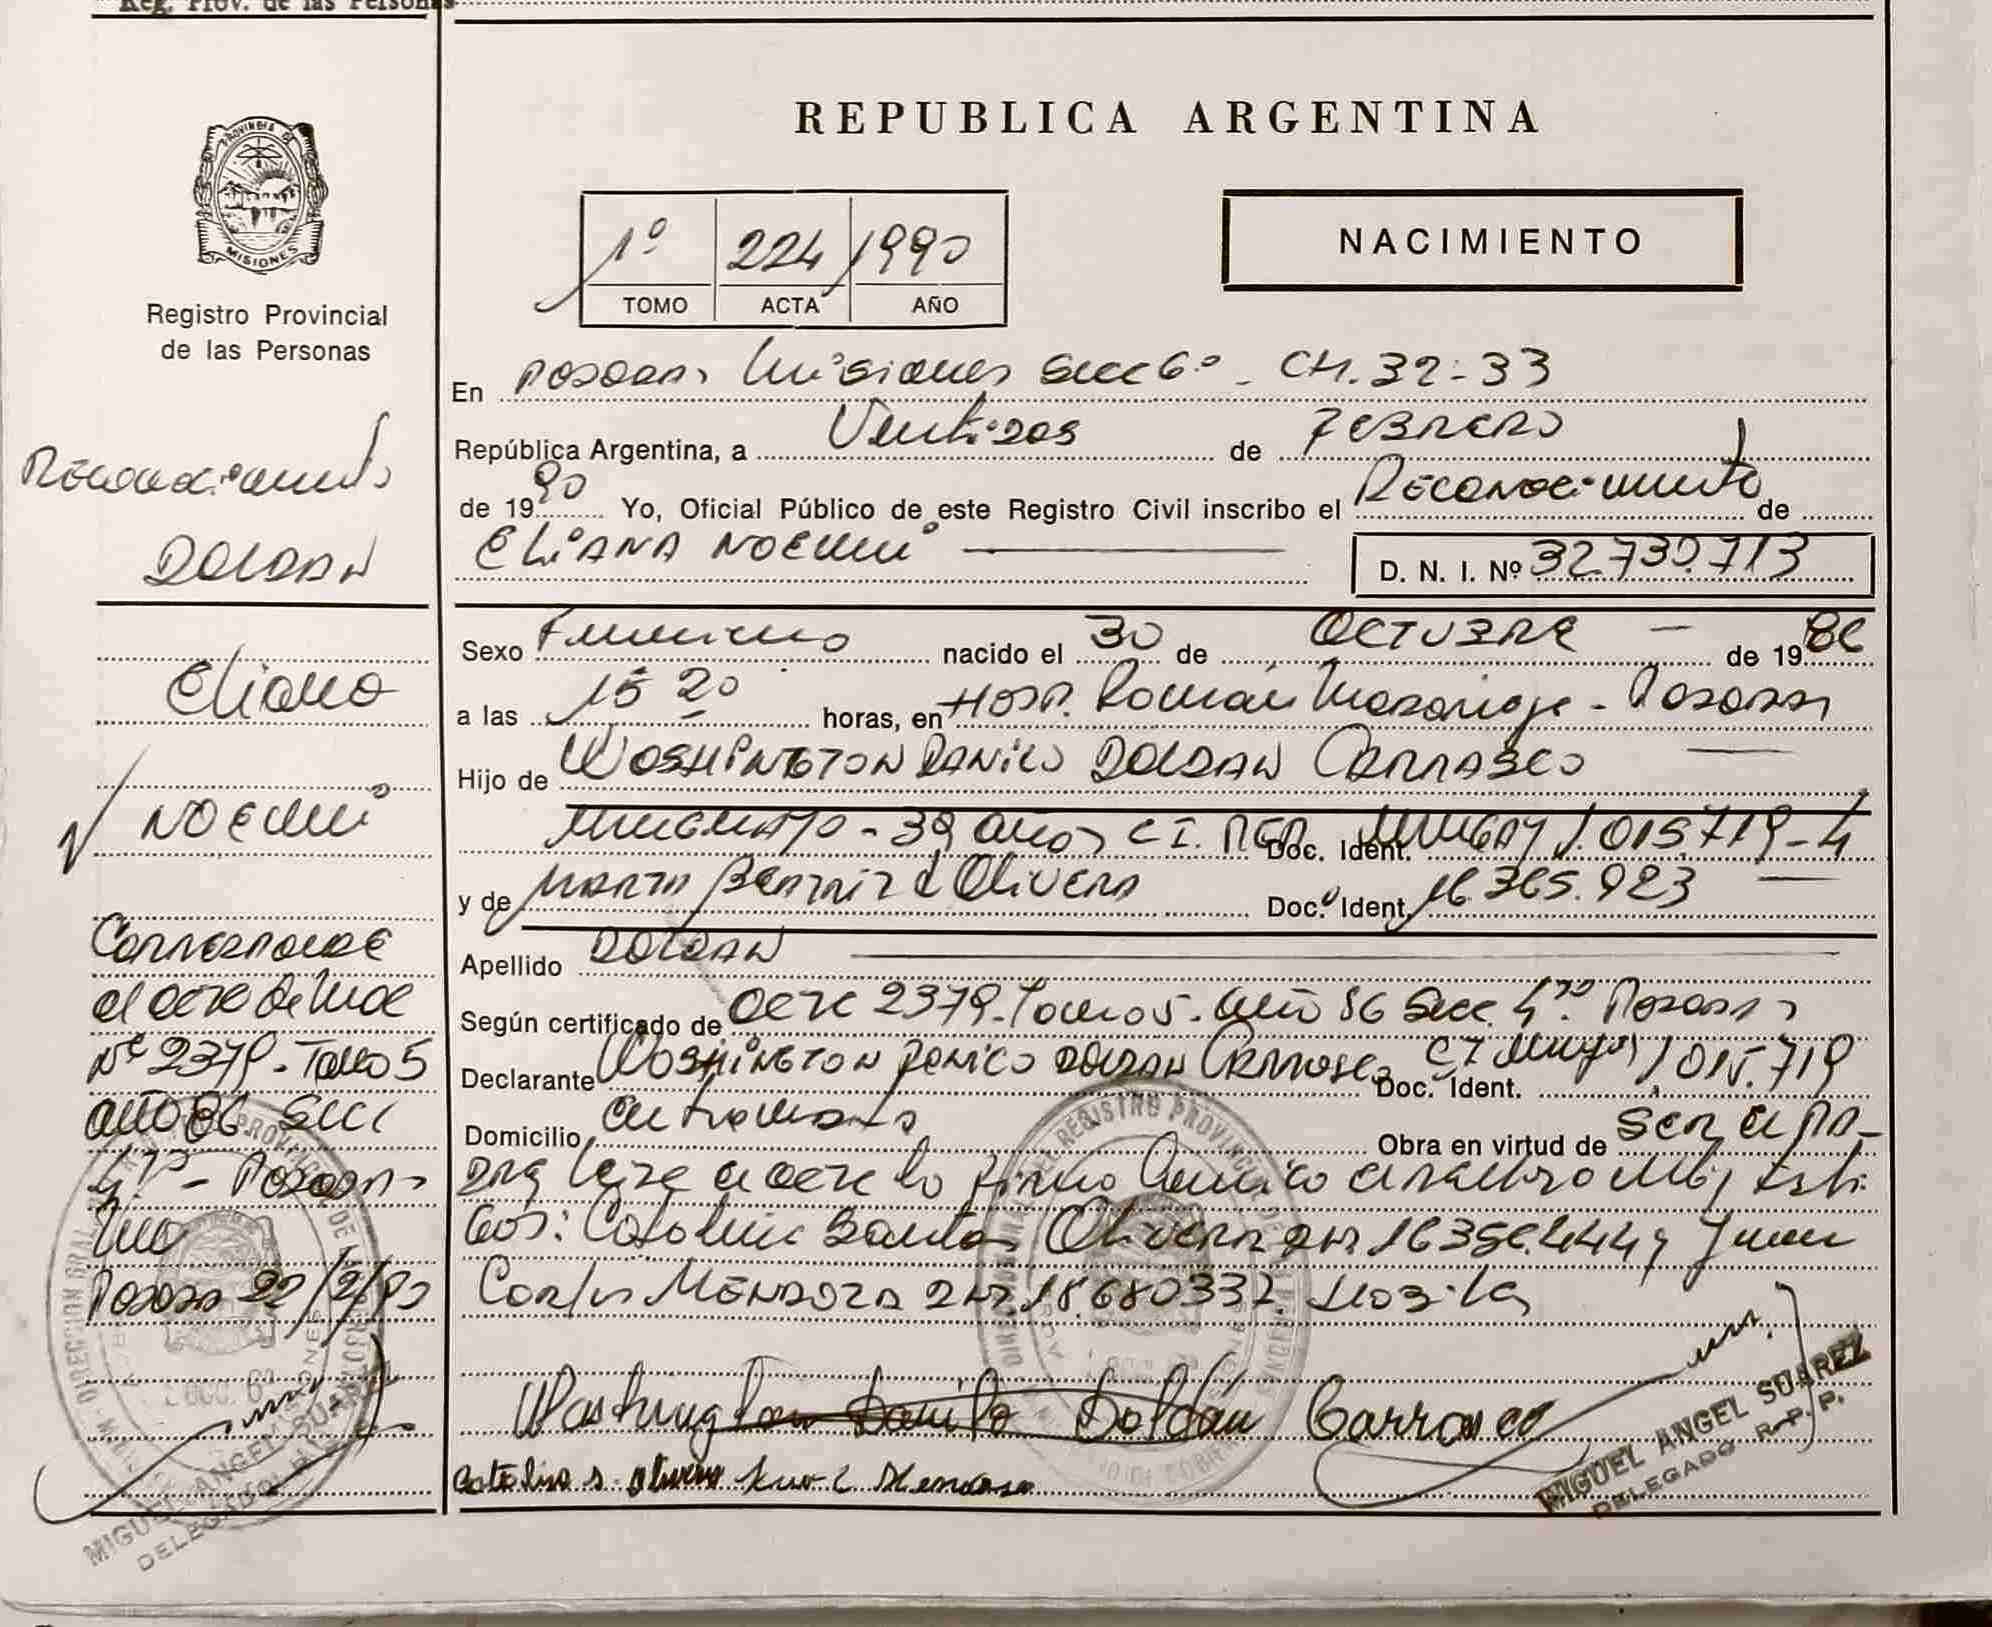 Reg. Prov. de las Personas
PROVINCIA DE
MISIONES
Registro Provincial
de las Personas
Reconocimiento
DOLDAN
Eliana
NOEMI
Corresponde
al acta de Nac
Nº 2379 - Tomo 5
año 86 Secc
4º - Posadas
Posadas 22/2/90
MIGUEL ANGEL SUAREZ
DELEGADO
REPUBLICA ARGENTINA
1º 224 1990
TOMO ACTA AÑO
NACIMIENTO
En Posadas Misiones Secc 6º - CH. 32-33
República Argentina, a Veintidos de FEBRERO
de 1990 Yo, Oficial Público de este Registro Civil inscribo el Reconocimiento de
ELIANA NOEMI D. N. I. Nº 32.730.713
Sexo Femenino nacido el 30 de OCTUBRE de 1986
a las 15 20 horas, en HOSP. Román Madariaga - Posadas
Hijo de WASHINGTON DANILO DOLDAN CARRASCO
URUGUAYO - 39 años C I. REP. Doc. Ident. URUGAY 1.015.719-4
y de MARTA BEATRIZ d Olivera Doc. Ident. 16.365.923
Apellido DOLDAN
Según certificado de acta 2379-Tomo 5-año 86 Secc. 4ta. Posadas
Declarante WASHINGTON DANILO DOLDAN CARRASCO Doc. Ident. CI Uruguay 1.015.719
Domicilio Obra en virtud de ser el pa-
dre leida el acta la firma
gos: Catalina Santa Olivera DNI. y Juan
Carlos MENDOZA DNI. 18.680337.
Washington Danilo Doldán Carrasco
Catalina S. Olivera Juan C Mendoza
MIGUEL ANGEL SUAREZ
DELEGADO R. P. P.